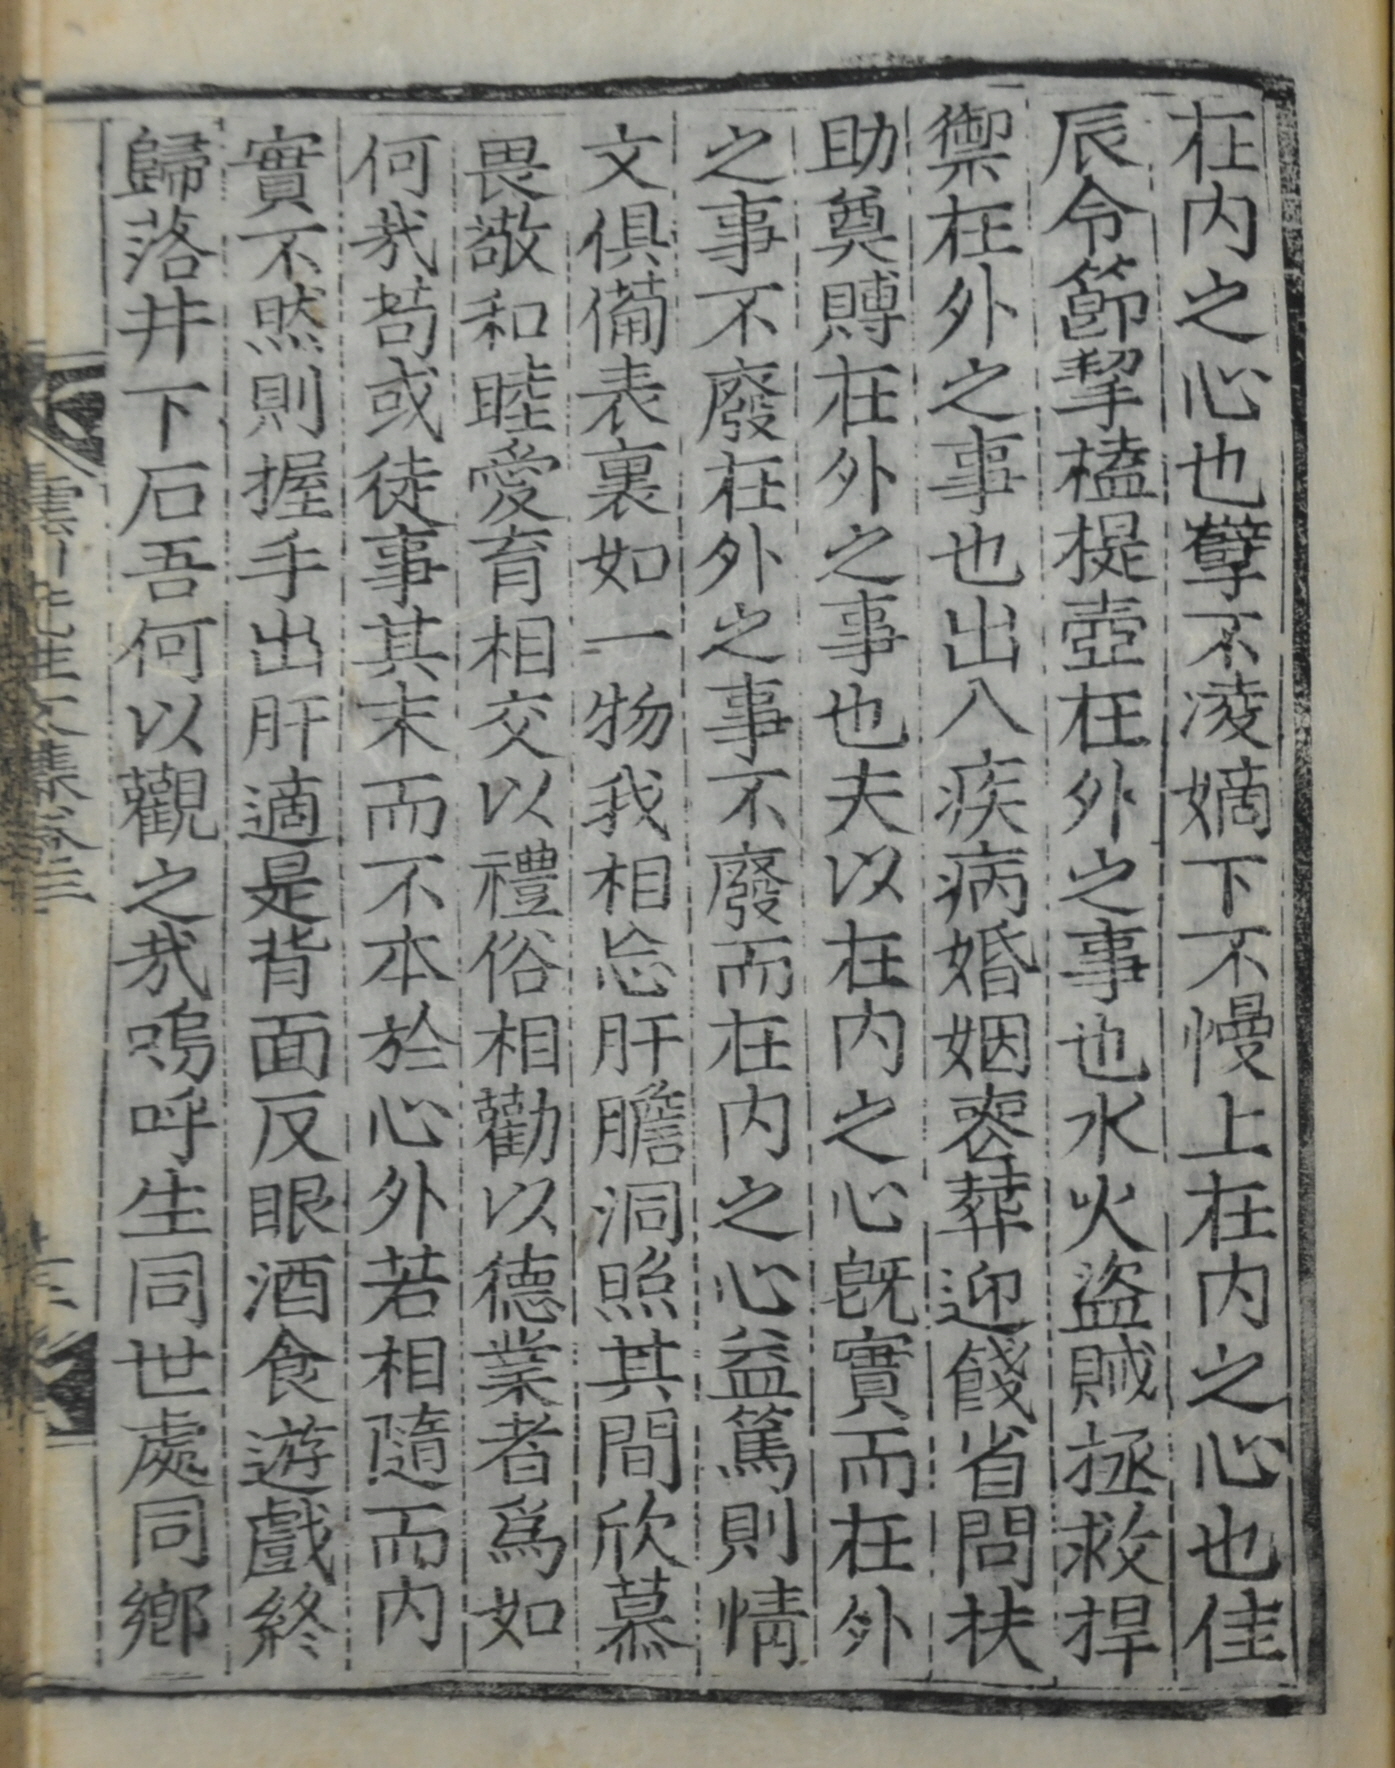 在內之心也孼不凌嫡下不慢上在內之心也佳
辰令節挈榼提壺在外之事也水火盜賊拯救捍
禦在外之事也出入疾病婚姻喪葬迎餞省問扶
助奠賻在外之事也夫以在內之心旣實而在外
之事不廢在外之事不廢而在內之心益篤則情
文俱備表裏如一物我相忘肝膽洞照其間欣慕
畏敬和睦愛育相交以禮俗相勸以德業者爲如
何哉苟或徒事其末而不本於心外若相隨而內
實不然則握手出肝適是背面反眼酒食遊戱終
歸落井下石吾何以觀之哉嗚呼生同世處同鄕
先生文集卷三